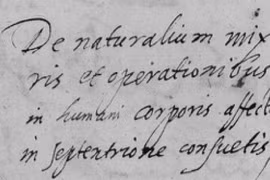 De naturalium mix
ris et operationibus
in humani corporis affect
in septentrione consuetis